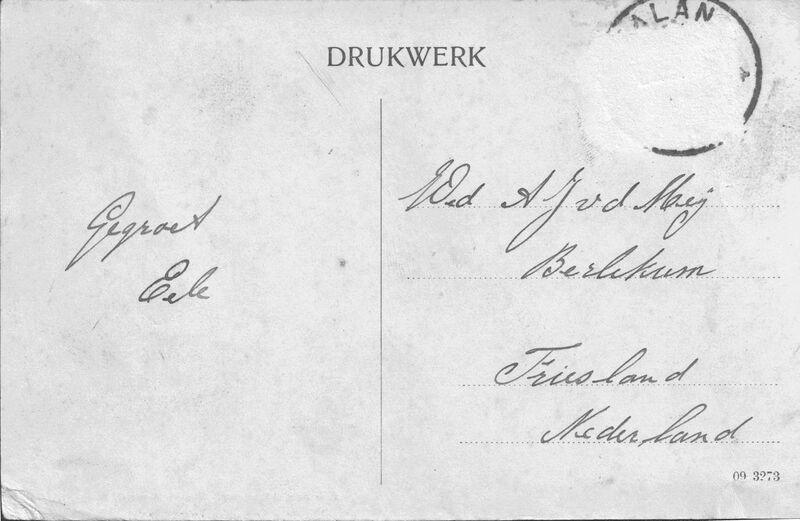 DRUKWERK
ALAN
Gegroet
Eele
Wed A J v d Meij
Berlekum
Friesland
Nederland
09 3273